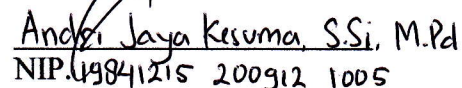 Andri Jaya Kesuma, S.Si, M.Pd
NIP. 19841215 200912 1005